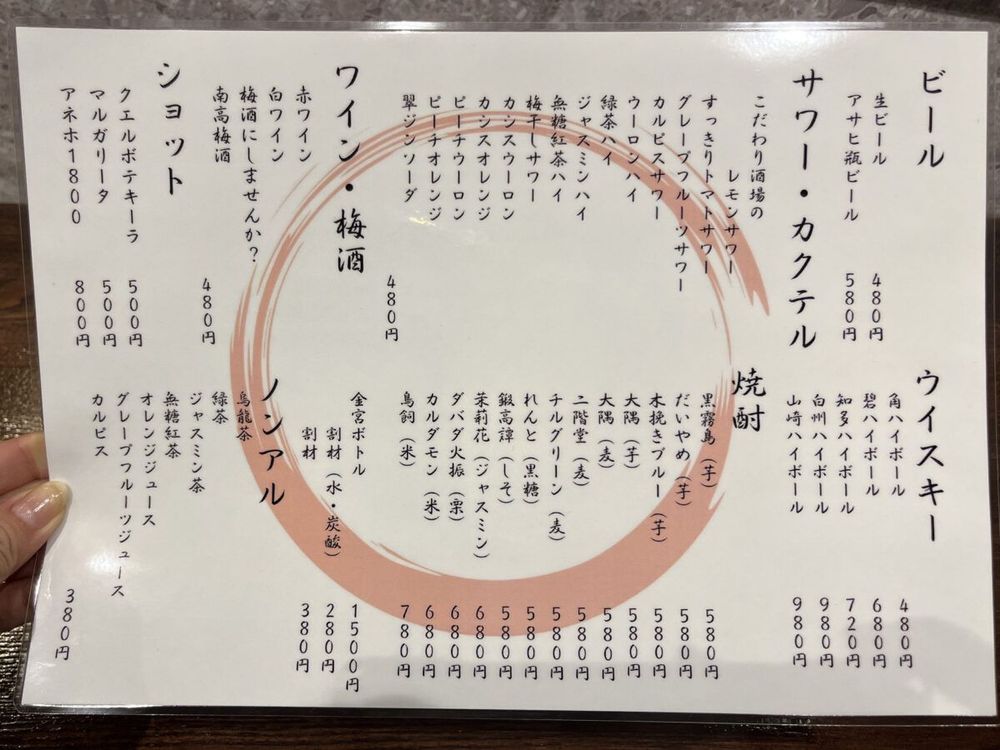 ビール
生ビール 480円
アサヒ瓶ビール 580円
サワー・カクテル
こだわり酒場の
レモンサワー
すっきりトマトサワー
グレープフルーツサワー
カルピスサワー
ウーロンハイ
緑茶ハイ
ジャスミンハイ
無糖紅茶ハイ
梅干しサワー
カシスウーロン
カシスオレンジ
ピーチウーロン
ピーチオレンジ
翠ジンソーダ
480円
ワイン・梅酒
赤ワイン
白ワイン
梅酒にしませんか?
南高梅酒
480円
ショット
クエルボテキーラ 500円
マルガリータ 500円
アネホ1800 800円
ウイスキー
角ハイボール 480円
碧ハイボール 680円
知多ハイボール 720円
白州ハイボール 980円
山崎ハイボール 980円
焼酎
黒霧島(芋) 580円
だいやめ(芋) 580円
木挽きブルー(芋) 580円
大隅(芋) 580円
大隅(麦) 580円
二階堂(麦) 580円
チルグリーン(麦) 580円
れんと(黒糖) 580円
鍛高譚(しそ) 580円
茉莉花(ジャスミン) 680円
ダバダ火振(栗) 680円
カルダモン(米) 680円
鳥飼(米) 780円
金宮ボトル 1500円
割材(水・炭酸) 280円
割材 380円
ノンアル
烏龍茶
緑茶
ジャスミン茶
無糖紅茶
オレンジジュース
グレープフルーツジュース
カルピス
380円